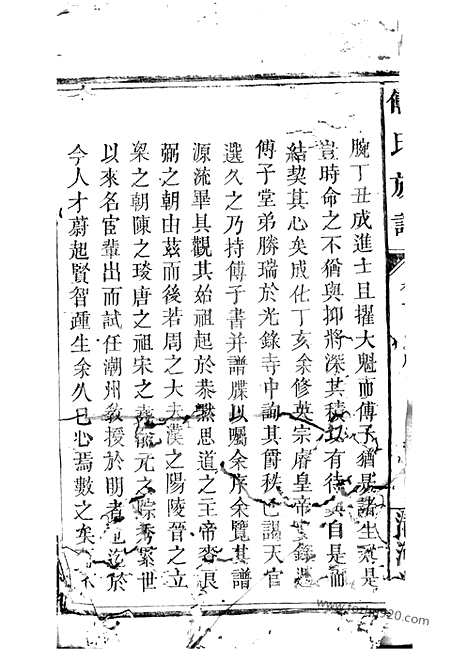 傅氏族譜
腕丁丑成進士且擢大魁而傅子猶是諸生
豈時命之不猶與抑將深其積以有待 自是而
結契其心矣成化丁亥余修英宗睿皇帝 錄
傅子堂弟勝瑞於光錄寺中詢其爵秩已謁天官
選久之乃持傅子書并譜牒以屬余序余覽其譜
源流畢具觀其始祖起於恭默思道之王帝賚良
弼之朝由茲而後若周之大夫漢之陽陵晉之立
梁之朝陳之琰唐之祖宋之 元之 秀累世
以來名宦輩出而試任潮州教授於明者 迄於
今人才蔚起賢智踵生余久已心焉數之矣
www.fozhu920.com